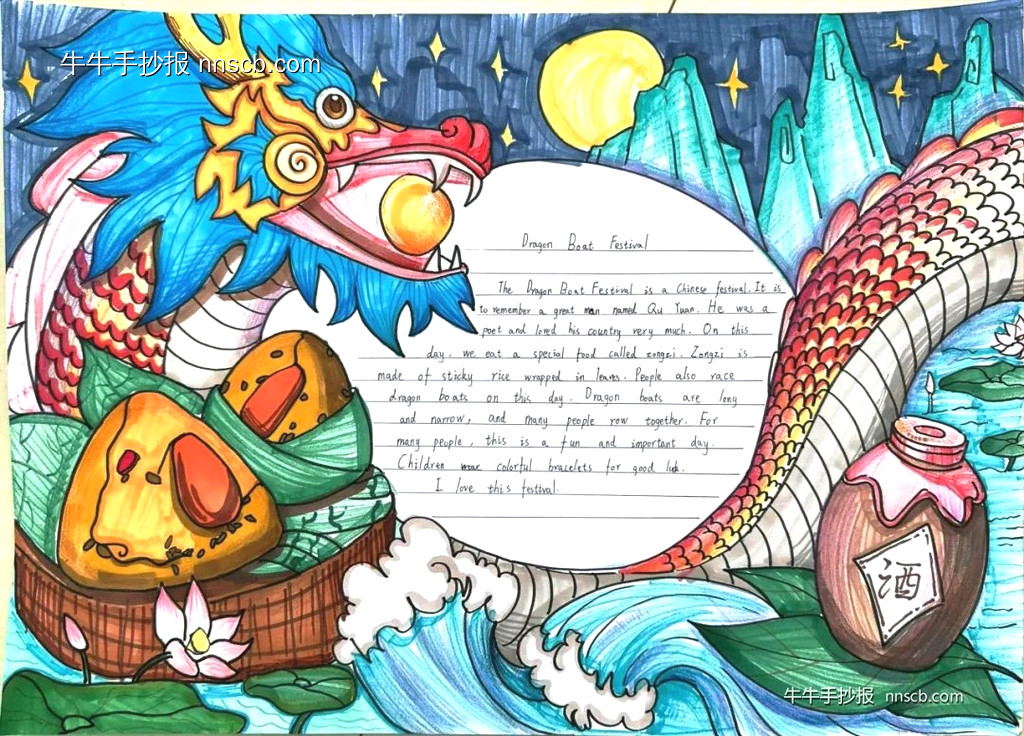 牛牛手抄报 nnscb.com
Dragon Boat Festival
The Dragon Boat Festival is a Chinese festival. It is
to remember a great man named Qu Yuan. He was a
poet and loved his country very much. On this
day, we eat a special food called zongzi. Zongzi is
made of sticky rice wrapped in leaves. People also race
dragon boats on this day. Dragon boats are long
and narrow, and many people row together. For
many people, this is a fun and important day.
Children wear colorful bracelets for good luck.
I love this festival.
酒
牛牛手抄报 nnscb.com